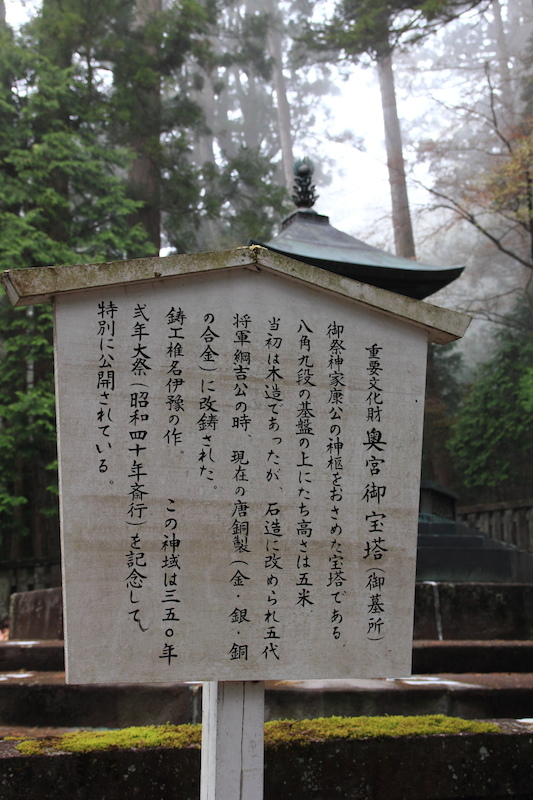 重要文化財 奥宮御宝塔(御墓所)
御祭神家康公の神柩をおさめた宝塔である
八角九段の基盤の上にたち高さは五米、
当初は木造であったが、石造に改められ五代
将軍綱吉公の時、現在の唐銅製(金・銀・銅
の合金)に改鋳された。
鋳工椎名伊豫の作。 この神域は三五〇年
弐年大祭(昭和四十年斎行)を記念して、
特別に公開されている。